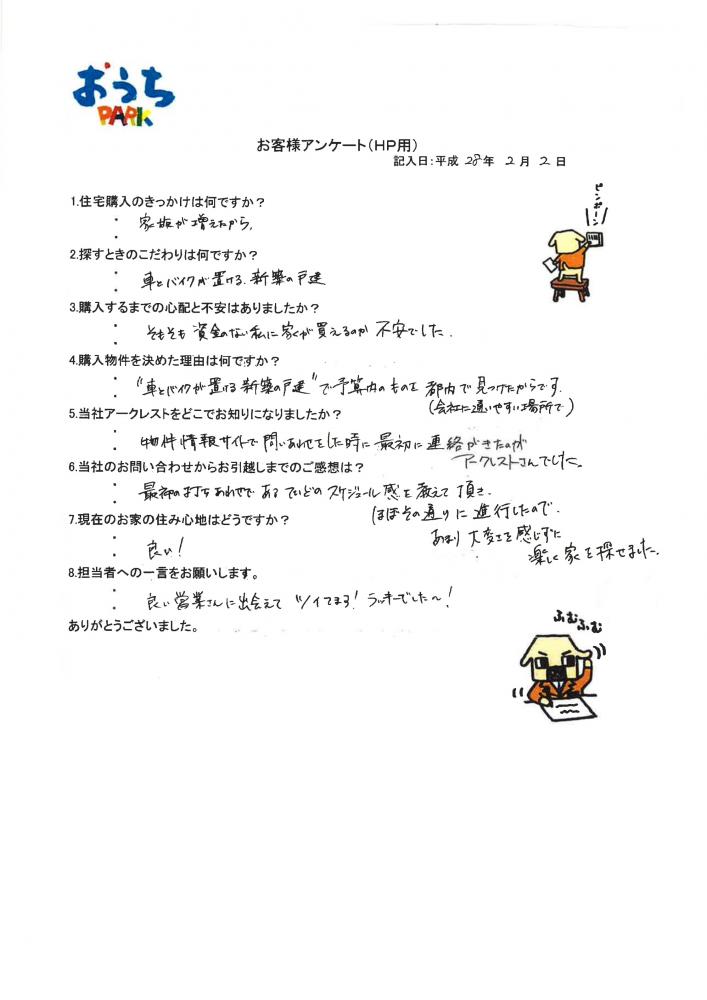 おうち
PARK
お客様アンケート(HP用)
記入日:平成 28年 2月 2日
1.住宅購入のきっかけは何ですか?
家族が増えたから。
ピンポーン
2.探すときのこだわりは何ですか?
車とバイクが置ける、新築の戸建
3.購入するまでの心配と不安はありましたか?
そもそも資金のない私に家が買えるのか不安でした.
4.購入物件を決めた理由は何ですか?
"車とバイクが置ける新築の戸建"で予算内のものを都内で見つけたからです.
(会社に通いやすい場所で)
5.当社アークレストをどこでお知りになりましたか?
物件情報サイトで問いあわせをした時に最初に連絡がきたのが
アークレストさんでした。
6.当社のお問い合わせからお引越しまでのご感想は?
最初の打ちあわせであるていどのスケジュール感を教えて頂き、
ほぼその通りに進行したので、
あまり大変さを感じずに
楽しく家を探せました.
7.現在のお家の住み心地はどうですか?
良い!
8.担当者への一言をお願いします。
良い営業さんに出会えてツイてます!ラッキーでした〜!
ありがとうございました。
ふむふむ